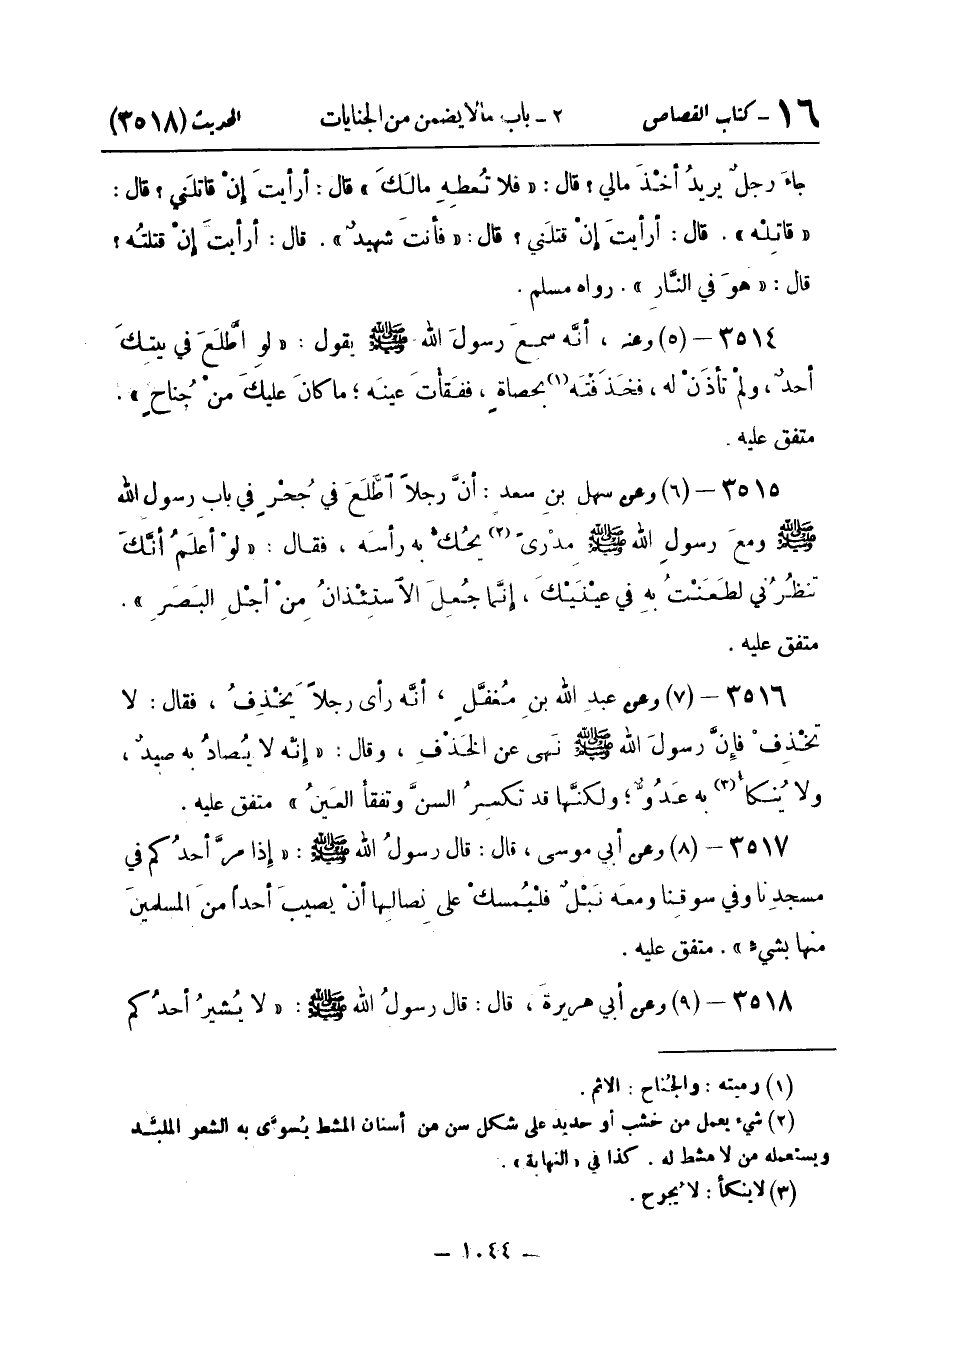 ١٦ - كتاب القصاص ٢ - باب مالا يضمن من الجنايات الحديث (٣٥١٨)
جاءَ رجلٌ يريدُ أخْذَ مالي؟ قال: «فلا تُعطهِ مالَكَ» قال: أرأيتَ إنْ قاتلَني؟ قال:
«قاتِلْه». قال: أرأيتَ إنْ قتلَني؟ قال: «فأنتَ شهيدٌ». قال: أرأيتَ إنْ قتلتُه؟
قال: «هوَ في النَّارِ». رواه مسلم.
٣٥١٤ - (٥) وعنه، أنَّه سمِعَ رسولَ الله ﷺ يقول: «لو اطَّلَعَ في بيتِكَ
أحدٌ، ولمْ تأذَنْ له، فخَذَفْتَه(١) بحصاةٍ، ففَقأْتَ عينَه؛ ما كانَ عليكَ منْ جُناحٍ».
متفق عليه.
٣٥١٥ - (٦) وعن سهل بنِ سعدٍ: أنَّ رجلاً اطَّلَعَ في جُحْرٍ في بابِ رسولِ الله
ﷺ ومعَ رسولِ الله ﷺ مِدْرىً(٢) يحُكُّ به رأسَه، فقال: «لوْ أعلَمُ أنَّكَ
تنظُرُني لطَعَنْتُ بهِ في عينَيْكَ، إنَّما جُعلَ الاستِئذانُ مِنْ أجْلِ البَصَرِ».
متفق عليه.
٣٥١٦ - (٧) وعن عبدِ الله بنِ مُغفَّلٍ، أنَّه رأى رجلاً يَخْذِفُ، فقال: لا
تخْذِفْ فإنَّ رسولَ الله ﷺ نَهى عن الخَذْفِ، وقال: «إنَّه لا يُصادُ به صيدٌ،
ولا يُنْكأُ(٣) به عَدُوٌّ؛ ولكنَّها قد تكسِرُ السنَّ وتفقأُ العَينُ» متفق عليه.
٣٥١٧ - (٨) وعن أبي موسى، قال: قال رسولُ الله ﷺ: «إذا مرَّ أحدُكم في
مسجدِنا وفي سوقِنا ومعَه نَبْلٌ فلْيُمسكْ على نِصالِها أنْ يصيبَ أحداً منَ المسلمينَ
منها بشيءٍ». متفق عليه.
٣٥١٨ - (٩) وعن أبي هريرةَ، قال: قال رسولُ الله ﷺ: «لا يُشيرُ أحدُكم
(١) رميته: والجُناح: الاثم.
(٢) شيء يعمل من خشب أو حديد على شكل سن من أسنان المشط يُسوَّى به الشعر الملبَّد
ويستعمله من لا مشط له. كذا في «النهاية».
(٣) لاينكأ: لا يُجرح.
- ١٠٤٤ -